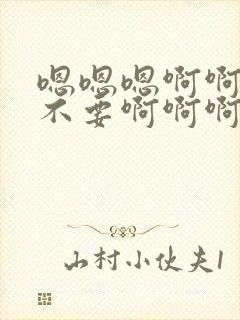 嗯嗯嗯啊啊
不要啊啊啊
山村小伙夫1